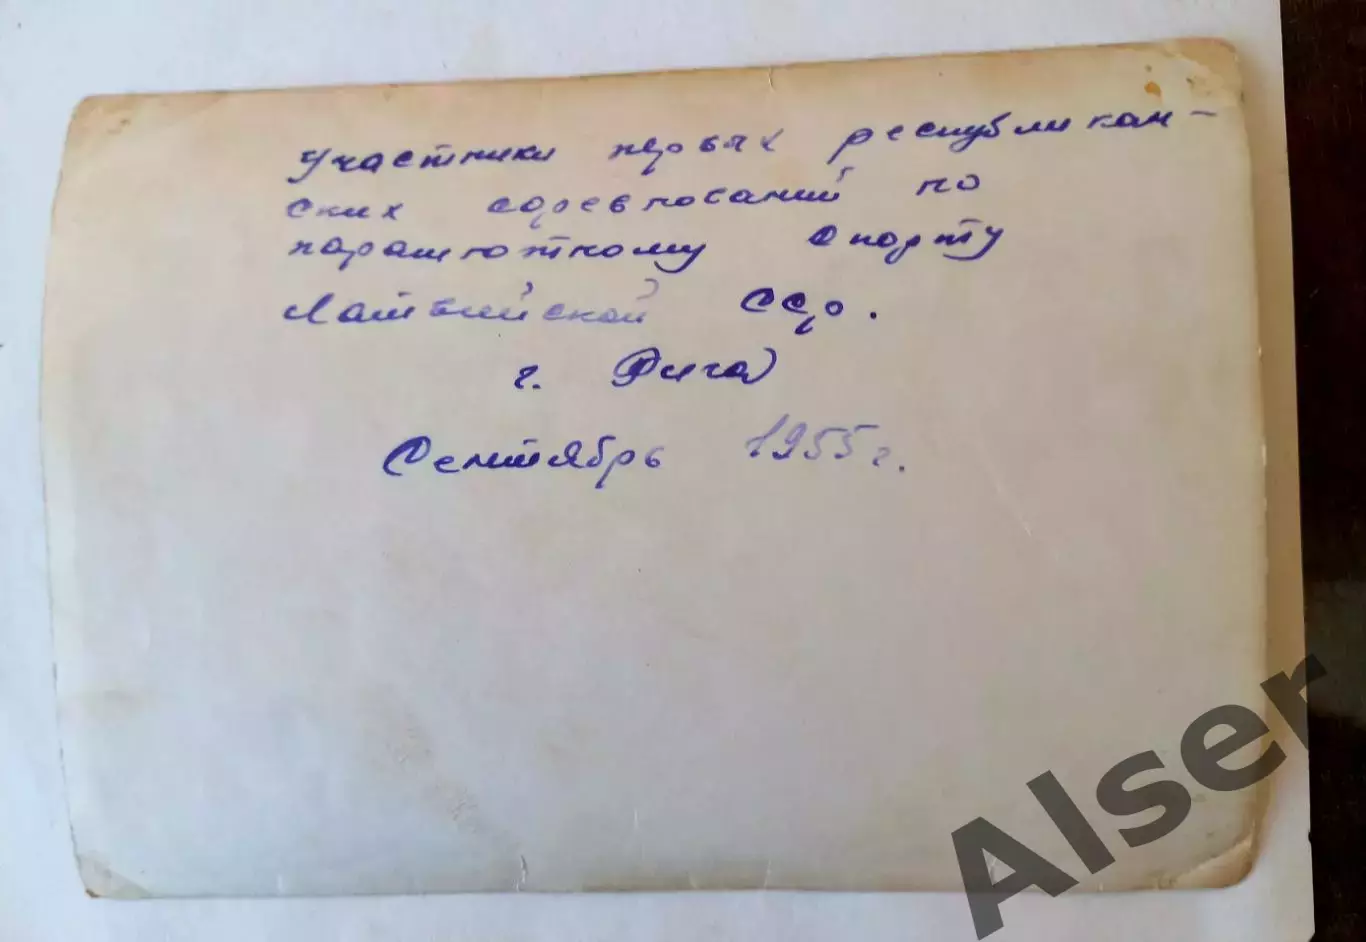 Участники первых республикан-
ских соревнований по
парашютному спорту
Латвийской ССР.
г. Рига
Сентябрь 1955 г.
Alser